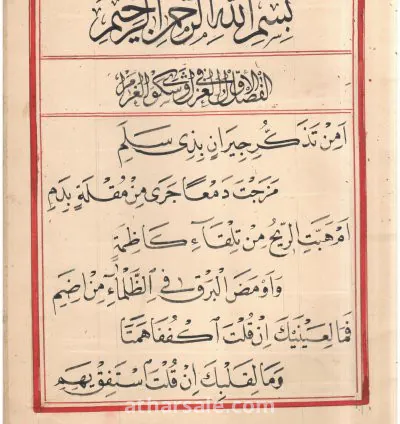 بسم الله الرحمن الرحيم
الفصل الاول في الغزل وشكوى الغرام
اَمِنْ تَذَكُّرِ جِيرَانٍ بِذِى سَلَمِ
مَزَجْتَ دَمْعًا جَرَى مِنْ مُقْلَةٍ بِدَمِ
اَمْ هَبَّتِ الرِّيحُ مِنْ تِلْقَاءِ كَاظِمَةٍ
وَاَوْمَضَ الْبَرْقُ فِي الظَّلْمَاءِ مِنْ اِضَمِ
فَمَا لِعَيْنَيْكَ اِنْ قُلْتَ اكْفُفَا هَمَتَا
وَمَا لِقَلْبِكَ اِنْ قُلْتَ اسْتَفِقْ يَهِمِ
atharsale.com